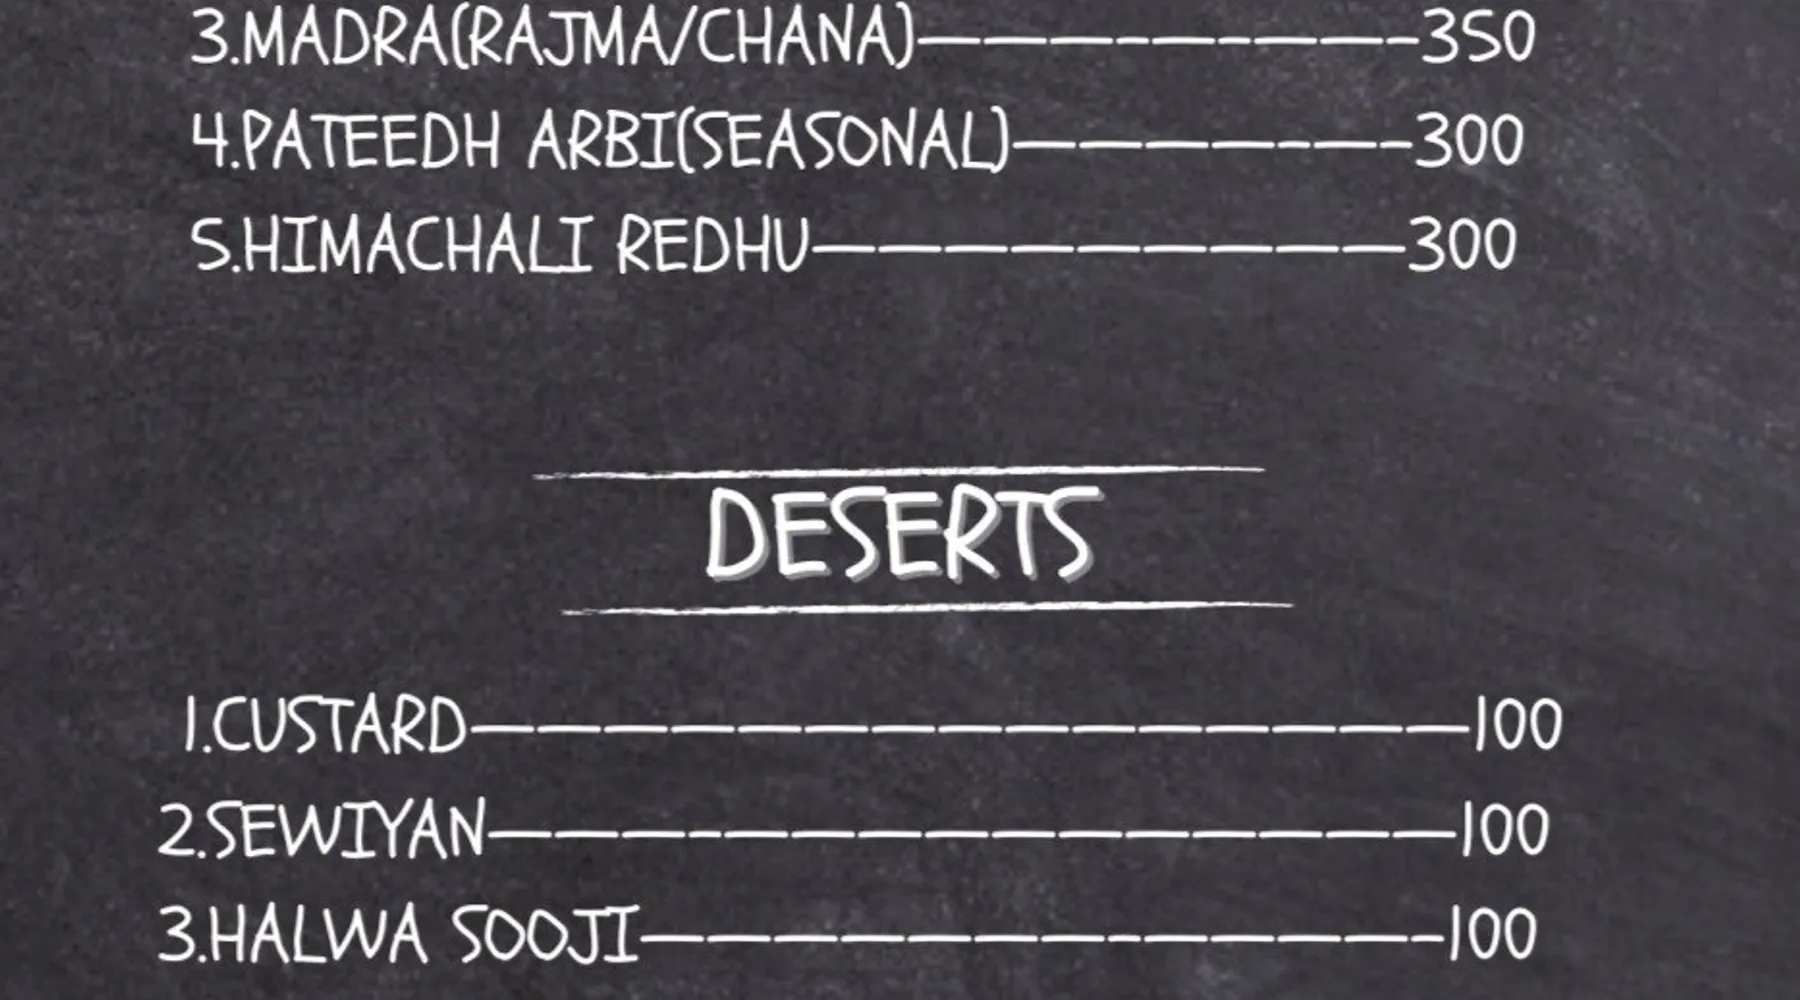 3.MADRA(RAJMA/CHANA)---------------350
4.PATEEDH ARBI(SEASONAL)------------300
5.HIMACHALI REDHU------------------300
DESERTS
1.CUSTARD------------------------------100
2.SEWIYAN-----------------------------100
3.HALWA SOOJI------------------------100